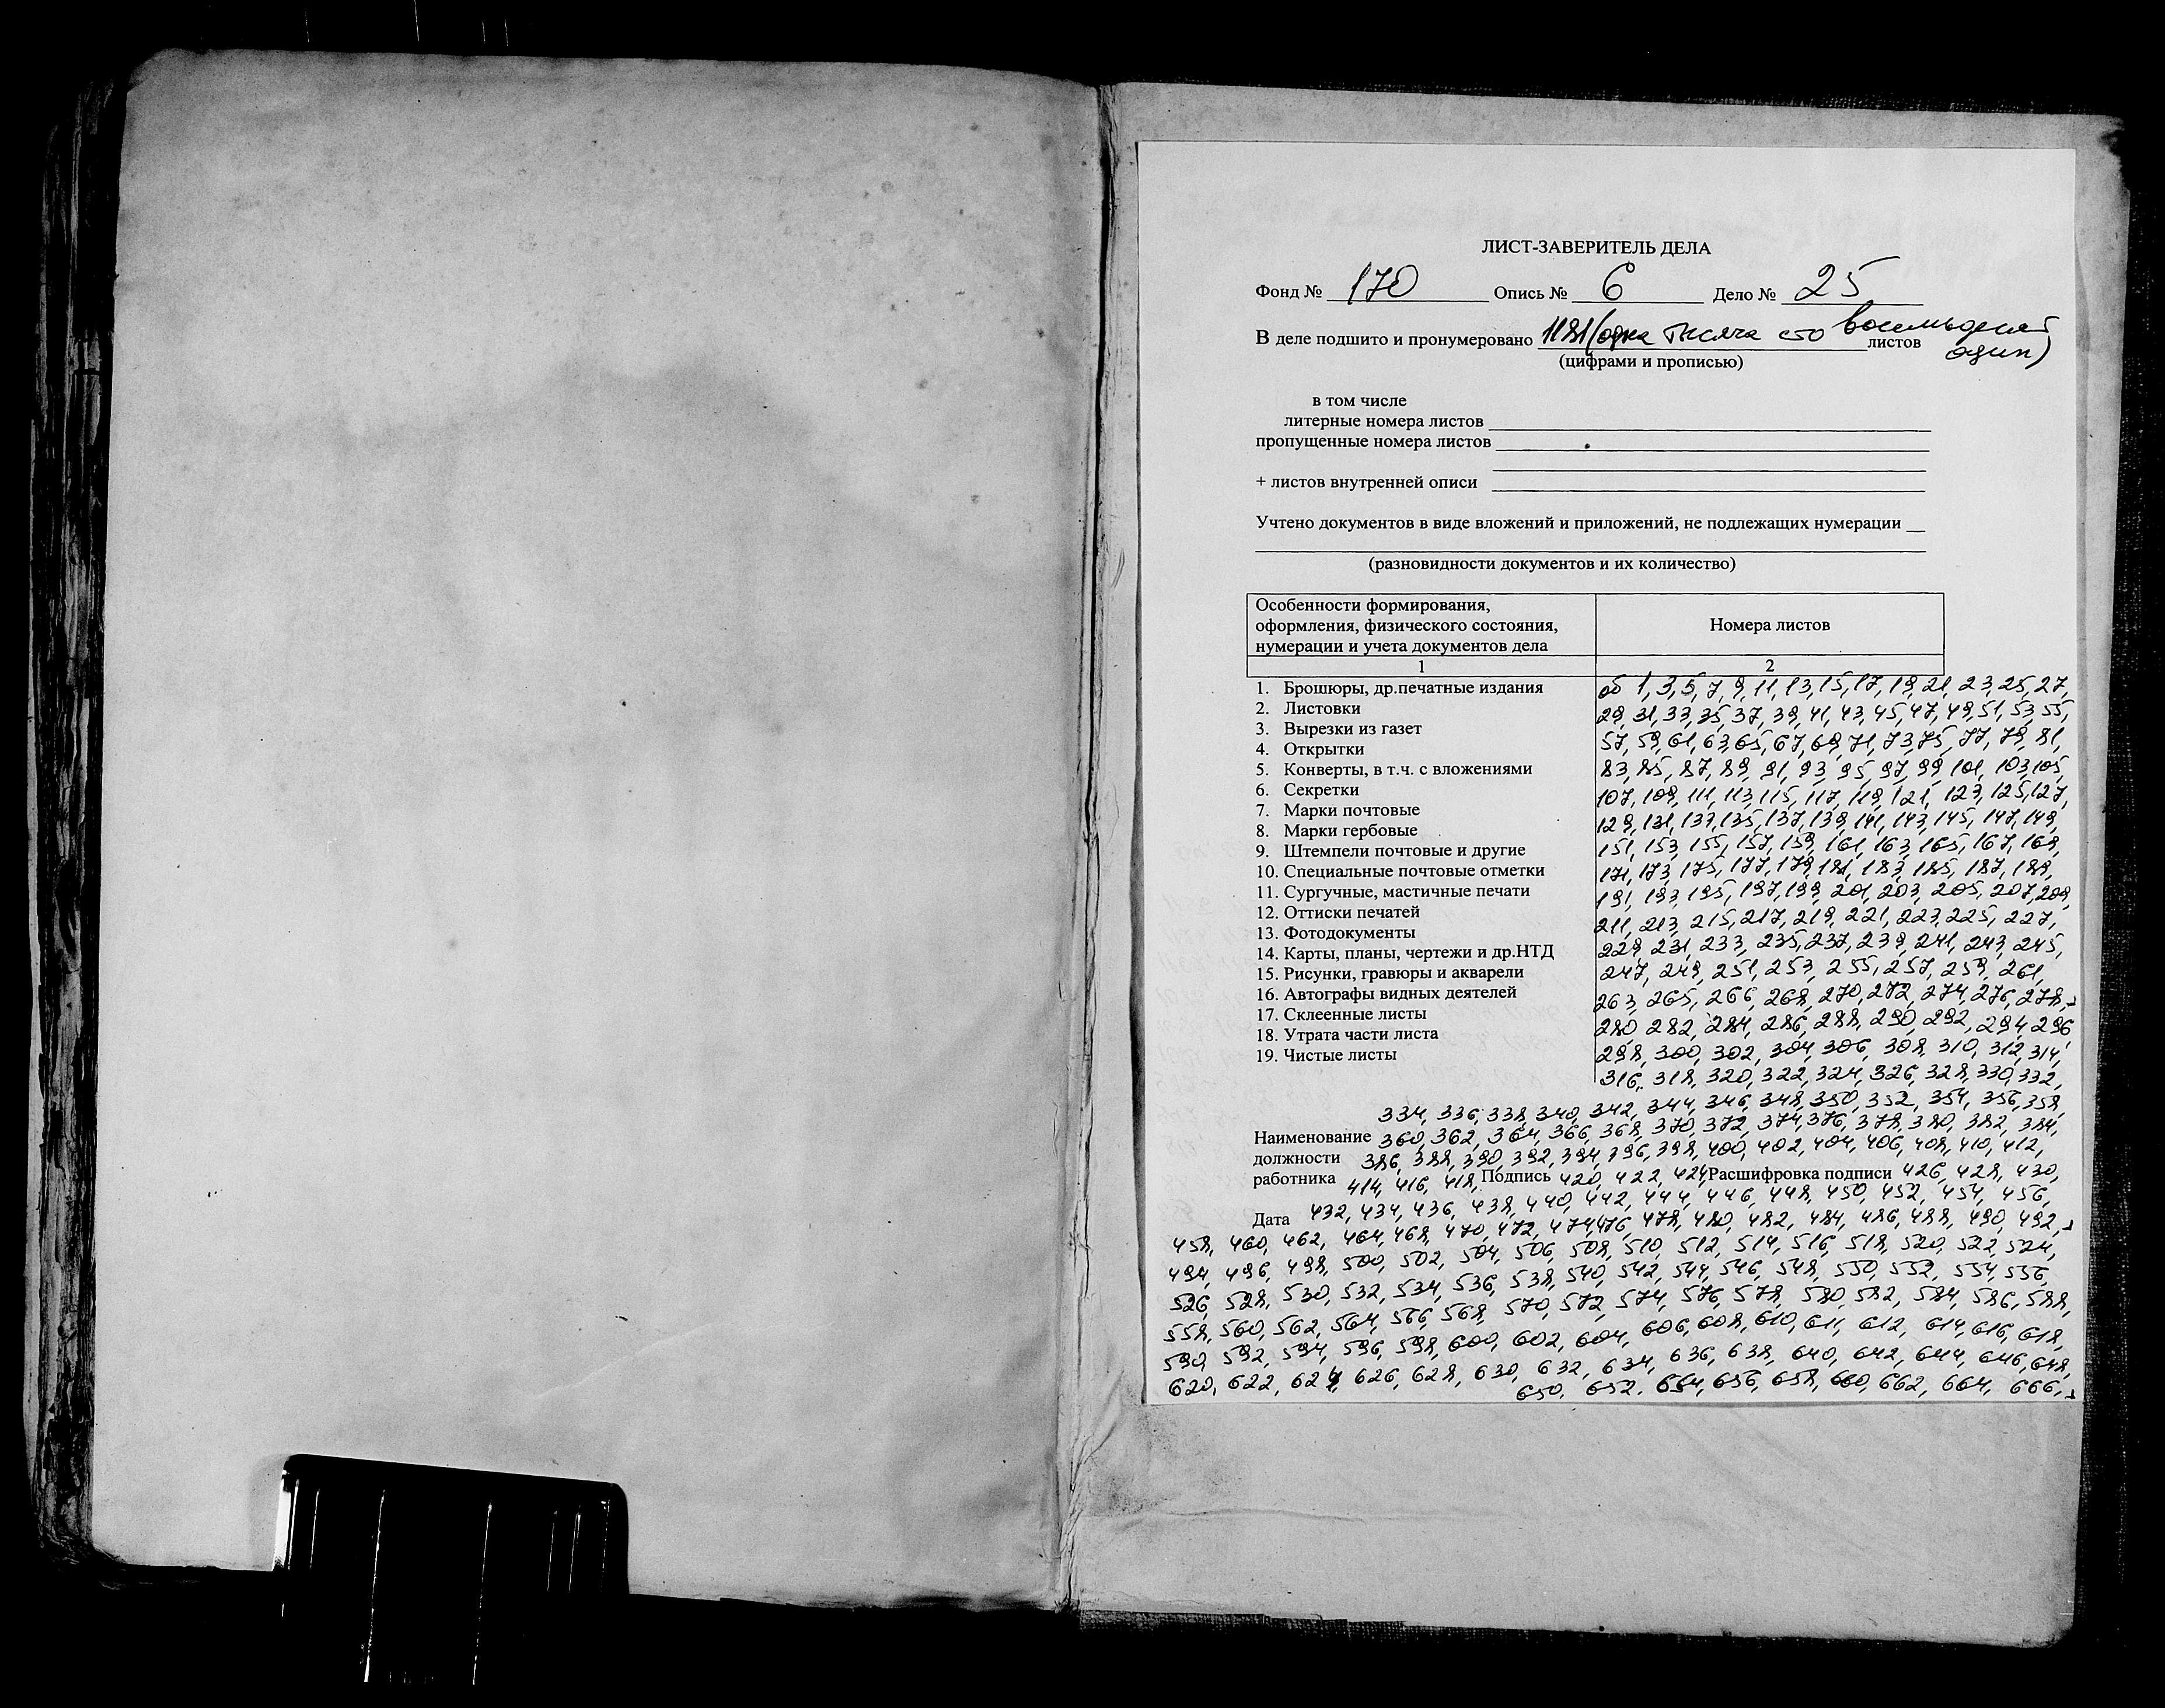 ЛИСТ-ЗАВЕРИТЕЛЬ ДЕЛА
Фонд № 170 Опись № 6 Дело № 25
В деле подшито и пронумеровано 1181 (одна тысяча сто восемьдесят один) листов
(цифрами и прописью)
в том числе
литерные номера листов
пропущенные номера листов
+ листов внутренней описи
Учтено документов в виде вложений и приложений, не подлежащих нумерации
(разновидности документов и их количество)
Особенности формирования,
оформления, физического состояния,
нумерации и учета документов дела
Номера листов
1 2
1. Брошюры, др.печатные издания
2. Листовки
3. Вырезки из газет
4. Открытки
5. Конверты, в т.ч. с вложениями
6. Секретки
7. Марки почтовые
8. Марки гербовые
9. Штемпели почтовые и другие
10. Специальные почтовые отметки
11. Сургучные, мастичные печати
12. Оттиски печатей
13. Фотодокументы
14. Карты, планы, чертежи и др.НТД
15. Рисунки, гравюры и акварели
16. Автографы видных деятелей
17. Склеенные листы
18. Утрата части листа
19. Чистые листы
об 1, 3, 5, 7, 9, 11, 13, 15, 17, 19, 21, 23, 25, 27,
29, 31, 33, 35, 37, 39, 41, 43, 45, 47, 49, 51, 53, 55,
57, 59, 61, 63, 65, 67, 69, 71, 73, 75, 77, 79, 81,
83, 85, 87, 89, 91, 93, 95, 97, 99, 101, 103, 105,
107, 109, 111, 113, 115, 117, 119, 121, 123, 125, 127,
129, 131, 133, 135, 137, 139, 141, 143, 145, 147, 149,
151, 153, 155, 157, 159, 161, 163, 165, 167, 169,
171, 173, 175, 177, 179, 181, 183, 185, 187, 189,
191, 193, 195, 197, 199, 201, 203, 205, 207, 209,
211, 213, 215, 217, 219, 221, 223, 225, 227,
229, 231, 233, 235, 237, 239, 241, 243, 245,
247, 249, 251, 253, 255, 257, 259, 261,
263, 265, 266, 268, 270, 272, 274, 276, 278,
280, 282, 284, 286, 288, 290, 292, 294, 296,
298, 300, 302, 304, 306, 308, 310, 312, 314,
316, 318, 320, 322, 324, 326, 328, 330, 332,
334, 336, 338, 340, 342, 344, 346, 348, 350, 352, 354, 356, 358,
Наименование 360, 362, 364, 366, 368, 370, 372, 374, 376, 378, 380, 382, 384,
должности 386, 388, 390, 392, 394, 396, 398, 400, 402, 404, 406, 408, 410, 412,
работника 414, 416, 418, Подпись 420, 422, 424, Расшифровка подписи 426, 428, 430,
Дата 432, 434, 436, 438, 440, 442, 444, 446, 448, 450, 452, 454, 456,
458, 460, 462, 464, 468, 470, 472, 474, 476, 478, 480, 482, 484, 486, 488, 490, 492,
494, 496, 498, 500, 502, 504, 506, 508, 510, 512, 514, 516, 518, 520, 522, 524,
526, 528, 530, 532, 534, 536, 538, 540, 542, 544, 546, 548, 550, 552, 554, 556,
558, 560, 562, 564, 566, 568, 570, 572, 574, 576, 578, 580, 582, 584, 586, 588,
590, 592, 594, 596, 598, 600, 602, 604, 606, 608, 610, 611, 612, 614, 616, 618,
620, 622, 624, 626, 628, 630, 632, 634, 636, 638, 640, 642, 644, 646, 648,
650, 652, 654, 656, 658, 660, 662, 664, 666,